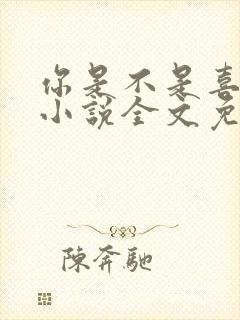 你是不是喜
小說全文免
陳奔馳